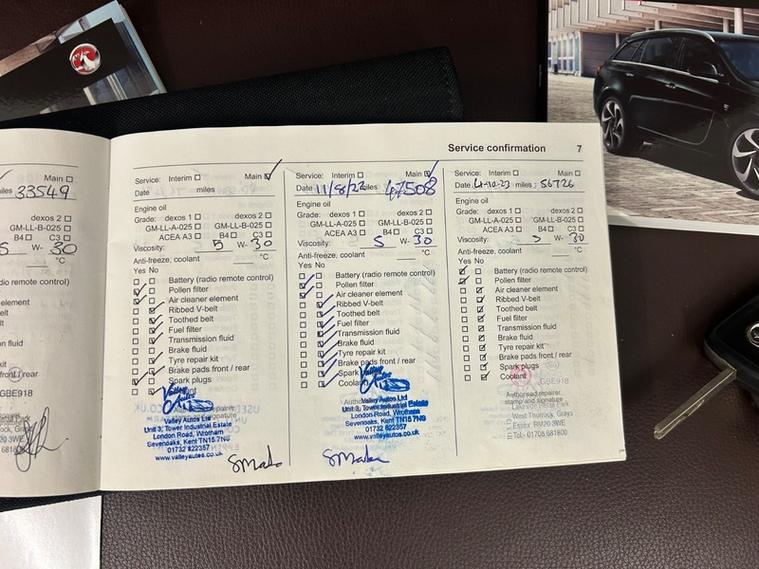 Service confirmation 7
Main
miles 33549
dexos 2
GM-LL-B-025
C3
W- 30
°C
GBE918
Service: Interim Main
Date miles
Engine oil
Grade: dexos 1 dexos 2
GM-LL-A-025 GM-LL-B-025
ACEA A3 B4 C3
Viscosity: 5 W- 30
Anti-freeze, coolant °C
Yes No
Battery (radio remote control)
Pollen filter
Air cleaner element
Ribbed V-belt
Toothed belt
Fuel filter
Transmission fluid
Brake fluid
Tyre repair kit
Brake pads front / rear
Spark plugs
Valley Autos
Valley Autos Ltd
Unit 3, Tower Industrial Estate
London Road, Wrotham
Sevenoaks, Kent TN15 7NS
01732 822357
www.valleyautos.co.uk
Service: Interim Main
Date 11/8/22 miles 47508
Engine oil
Grade: dexos 1 dexos 2
GM-LL-A-025 GM-LL-B-025
ACEA A3 B4 C3
Viscosity: 5 W- 30
Anti-freeze, coolant °C
Yes No
Battery (radio remote control)
Pollen filter
Air cleaner element
Ribbed V-belt
Toothed belt
Fuel filter
Transmission fluid
Brake fluid
Tyre repair kit
Brake pads front / rear
Spark
Coolant
Valley Autos
Valley Autos Ltd
Unit 3, Tower Industrial Estate
London Road, Wrotham
Sevenoaks, Kent TN15 7NS
01732 822357
www.valleyautos.co.uk
Service: Interim Main
Date 4-10-23 miles 56726
Engine oil
Grade: dexos 1 dexos 2
GM-LL-A-025 GM-LL-B-025
ACEA A3 B4 C3
Viscosity: 5 W- 30
Anti-freeze, coolant °C
Yes No
Battery (radio remote control)
Pollen filter
Air cleaner element
Ribbed V-belt
Toothed belt
Fuel filter
Transmission fluid
Brake fluid
Tyre repair kit
Brake pads front / rear
Spark plugs
Coolant
GBE918
Authorised repairer
stamp and signature
West Thurrock, Grays
Essex RM20 3WE
Tel: 01708 681800